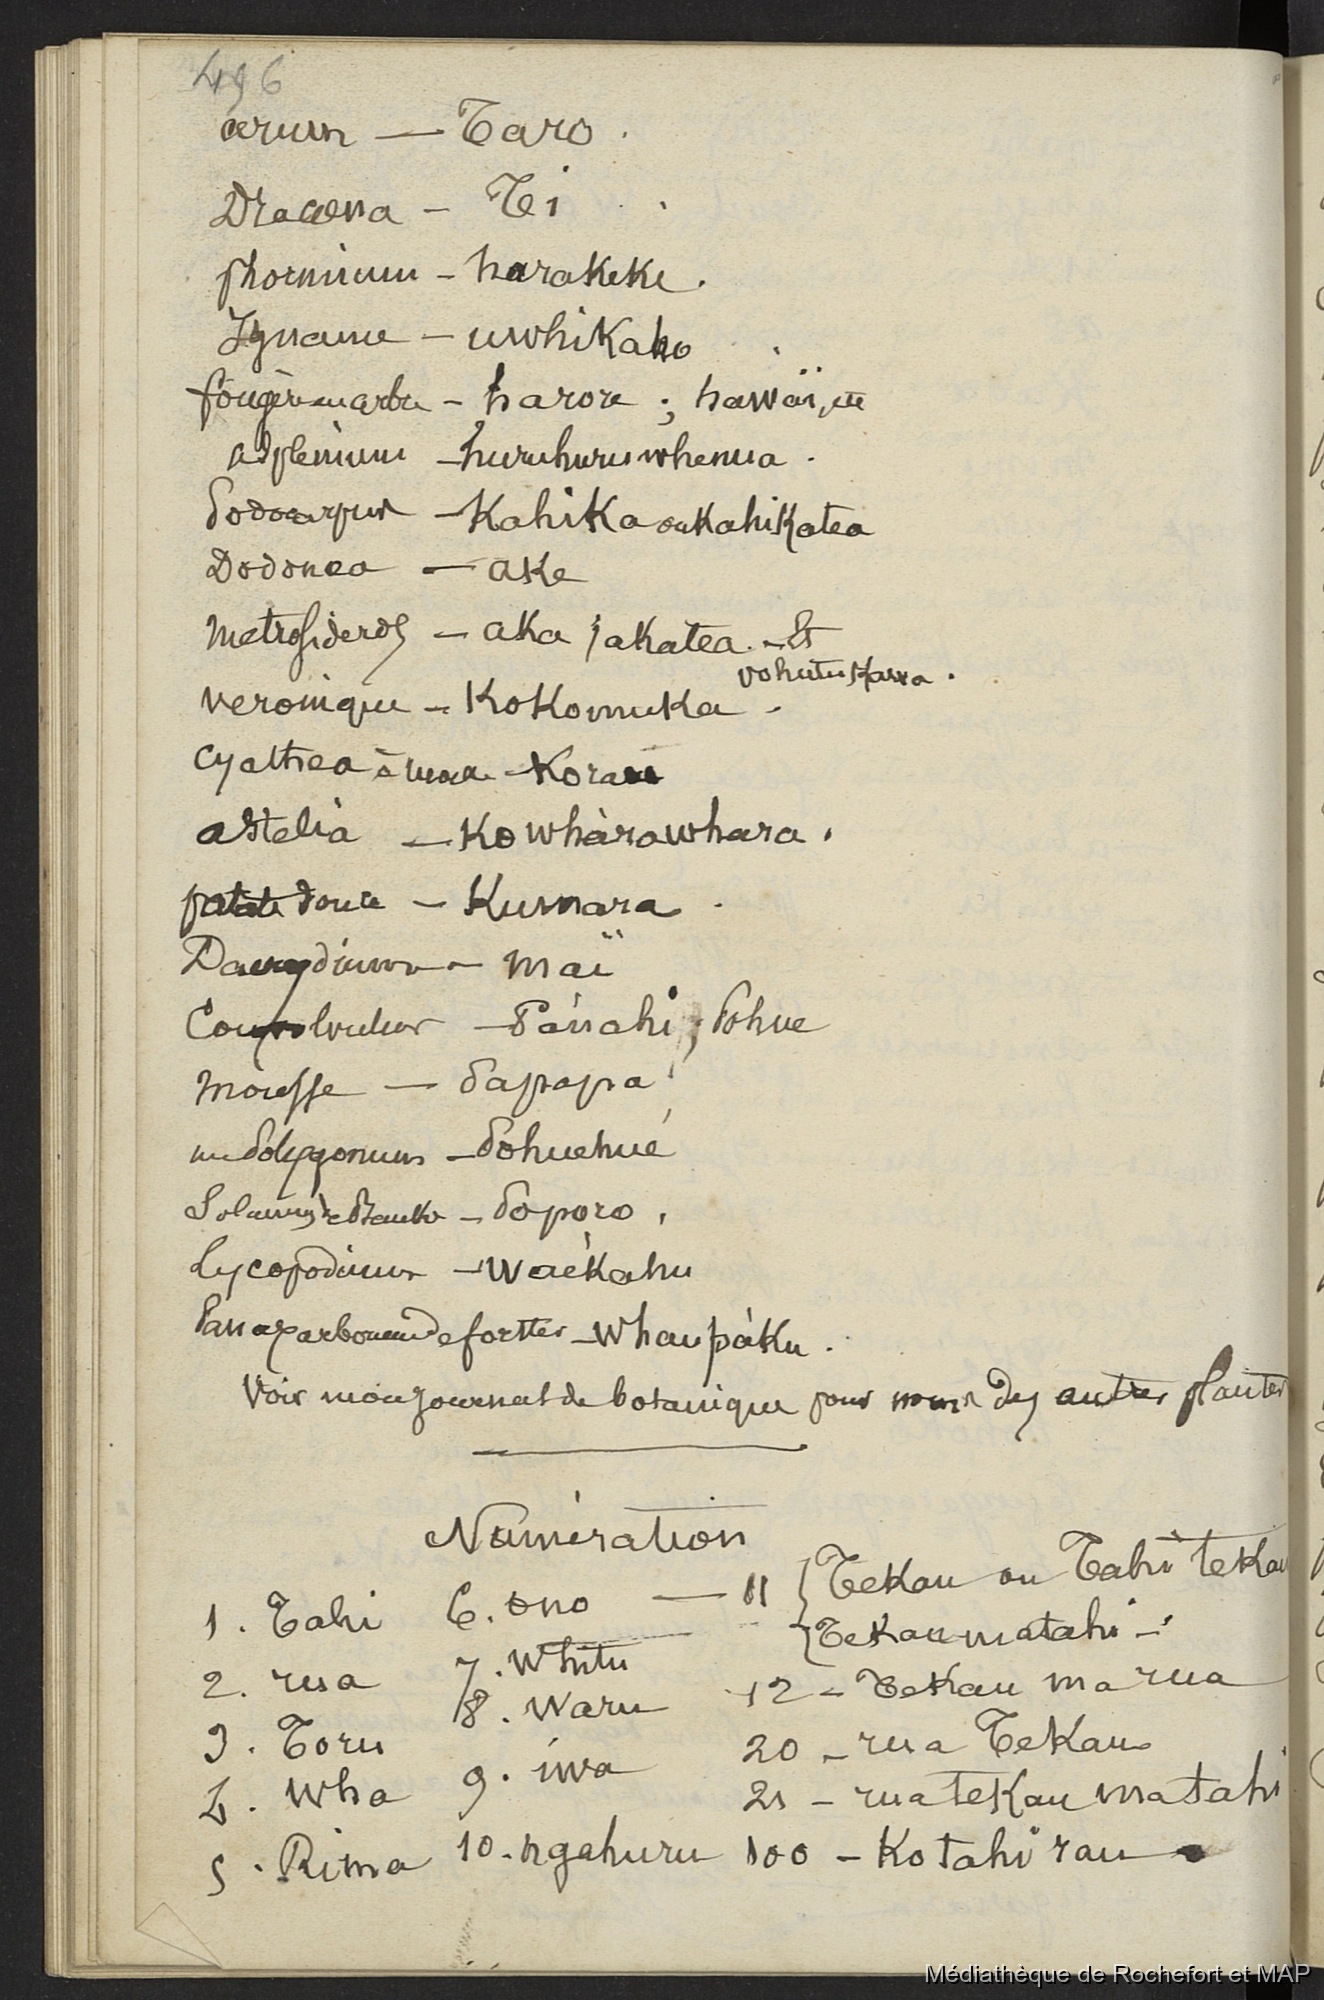 496
arum — Taro.
Dracoena — Ti
phormium — harakeke.
Igname — uwhikaho
fougère en arbre — harore ; hawaï, etc
asplenium — huruhuruwhenua.
Podocarpus — Kahika ou Kahikatea
Dodonea — ake
Metrosideros — aka, akatea. — Et
vohutukawa.
veronique — Kokomuka.
Cyathea — Korau
astelia — Kowhàrawhara.
patate douce — Kumara.
Dacrydium — maï
Convolvulus — Pánahi ; Pohue
Mousse — Papapa
un Polygonum — Pohuehué
Solanum de Banks — Poporo.
Lycopodium — Waékahu
Panax arboreum de forster — Whaupáku.
Voir mon journal de botanique pour noms des autres plantes
Numération
1. Tahi
2. rua
3. Toru
4. Wha
5. Rima
6. ono
7. Whitu
8. Waru
9. iwa
10. ngahuru
11 { Tekau ou Tahi tekau
{ Tekau matahi —
12 — Tekau ma rua
20 — rua Tekau
21 — rua tekau matahi
100 — Ko tahi rau
Médiathèque de Rochefort et MAP